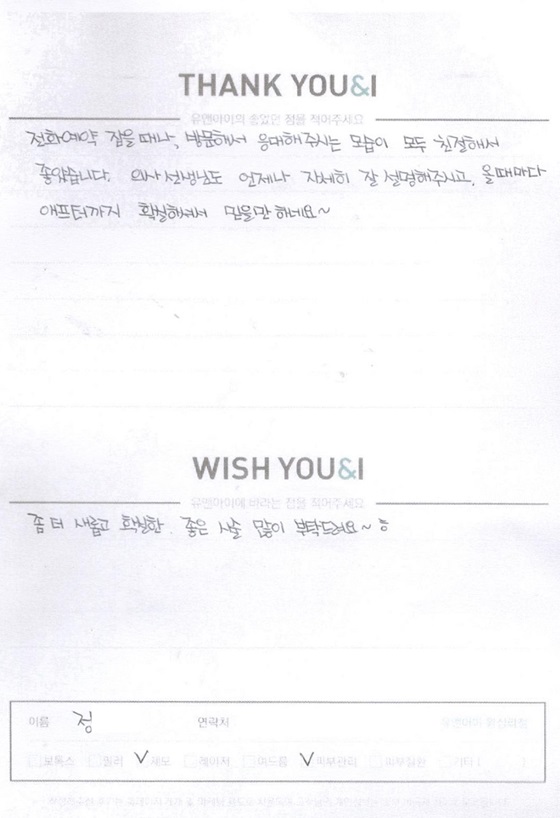 THANK YOU&I
유앤아이의 좋았던 점을 적어주세요
전화예약 잡을때나, 방문해서 응대해주시는 모습이 모두 친절해서
좋았습니다. 의사선생님도 언제나 자세히 잘 설명해주시고, 올때마다
애프터까지 확실해서 믿을만 하네요~
WISH YOU&I
유앤아이에 바라는 점을 적어주세요
좀 더 새롭고 확실한. 좋은 시술 많이 부탁드려요~
이름 정 연락처
보톡스 필러 제모 레이저 여드름 피부관리 피부질환 기타 ( )